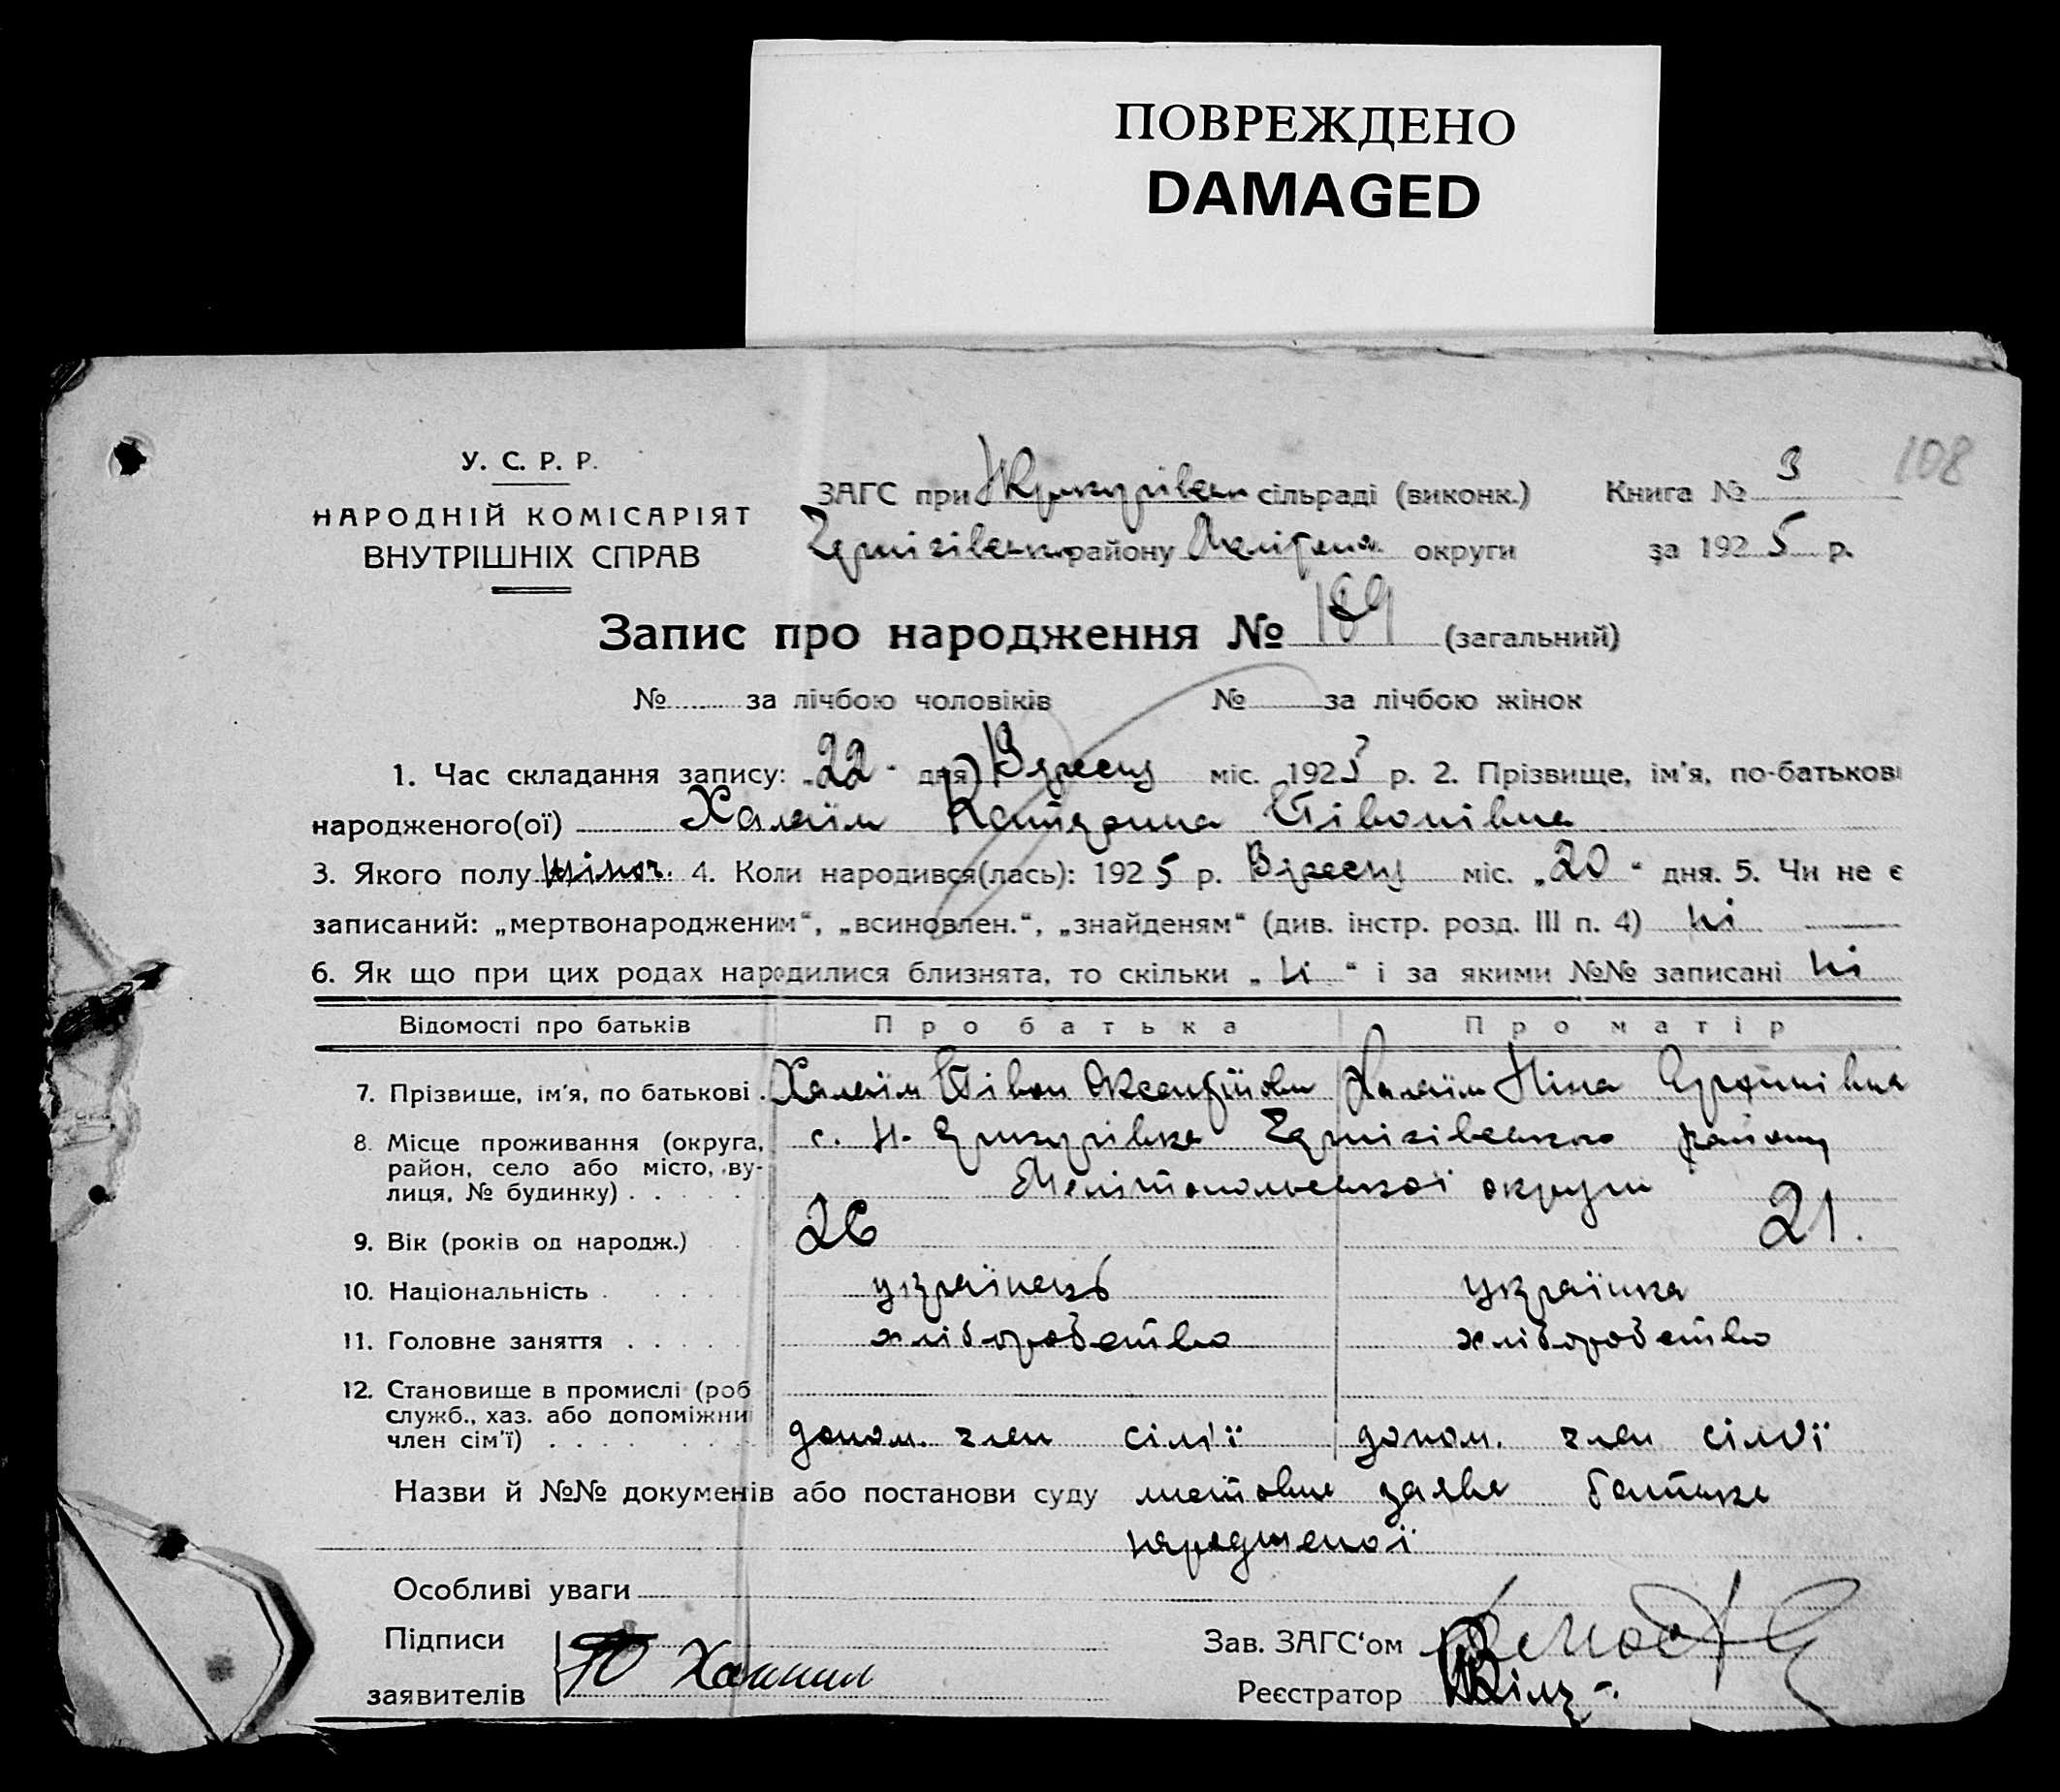 ПОВРЕЖДЕНО
DAMAGED
108
У. С. Р. Р.
НАРОДНІЙ КОМІСАРІЯТ
ВНУТРІШНІХ СПРАВ
ЗАГС при сільраді (виконк.) Книга № 3
району округи за 1925 р.
Запис про народження № 189 (загальний)
№ за лічбою чоловіків № за лічбою жінок
1. Час складання запису: „22“ дня Вересня міс. 1925 р. 2. Прізвище, ім'я, по-батькові
народженого(ої) Халаїм Катерина Півонівна
3. Якого полу жіноч. 4. Коли народився(лась): 1925 р. Вересня міс. „20“ дня. 5. Чи не є
записаний: „мертвонародженим“, „всиновлен.“, „знайденям“ (див. інстр. розд. III п. 4) ні
6. Як що при цих родах народилися близнята, то скільки „ні“ і за якими №№ записані ні
Відомості про батьків Про батька Про матір
7. Прізвище, ім'я, по батькові . Халаїм Півон Халаїм Ніна
8. Місце проживання (округа, район, село або місто, ву-лиця, № будинку) с. Н. Чернігівського району
Мелітопольської округи
9. Вік (років од народж.) 26 21.
10. Національність українець українка
11. Головне заняття хліборобство хліборобство
12. Становище в промислі (роб
служб., хаз. або допоміжни
член сім'ї) допом. член сім'ї допом. член сім'ї
Назви й №№ документів або постанови суду заява батька
народженої
Особливі уваги
Підписи Зав. ЗАГС'ом
заявителів Реєстратор